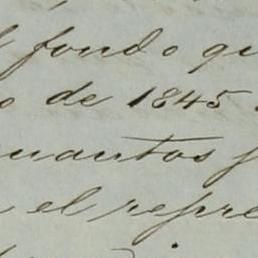 l fondo qu
o de 1845
cuantos f
n el repre